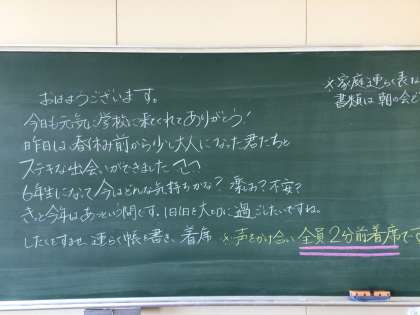 おはようございます。
今日も元気に学校に来てくれてありがとう!
昨日は、春休み前から少し大人になった君たちと
ステキな出会いができました
6年生になって今はどんな気持ちかな? 楽しみ? 不安?
きっと今年はあっという間です。1日1日を大切に過ごしたいですね。
したくをすませ、連らく帳を書き、着席 ※声をかけ合い全員2分前着席で
※家庭連らく表な
書類は朝の会で